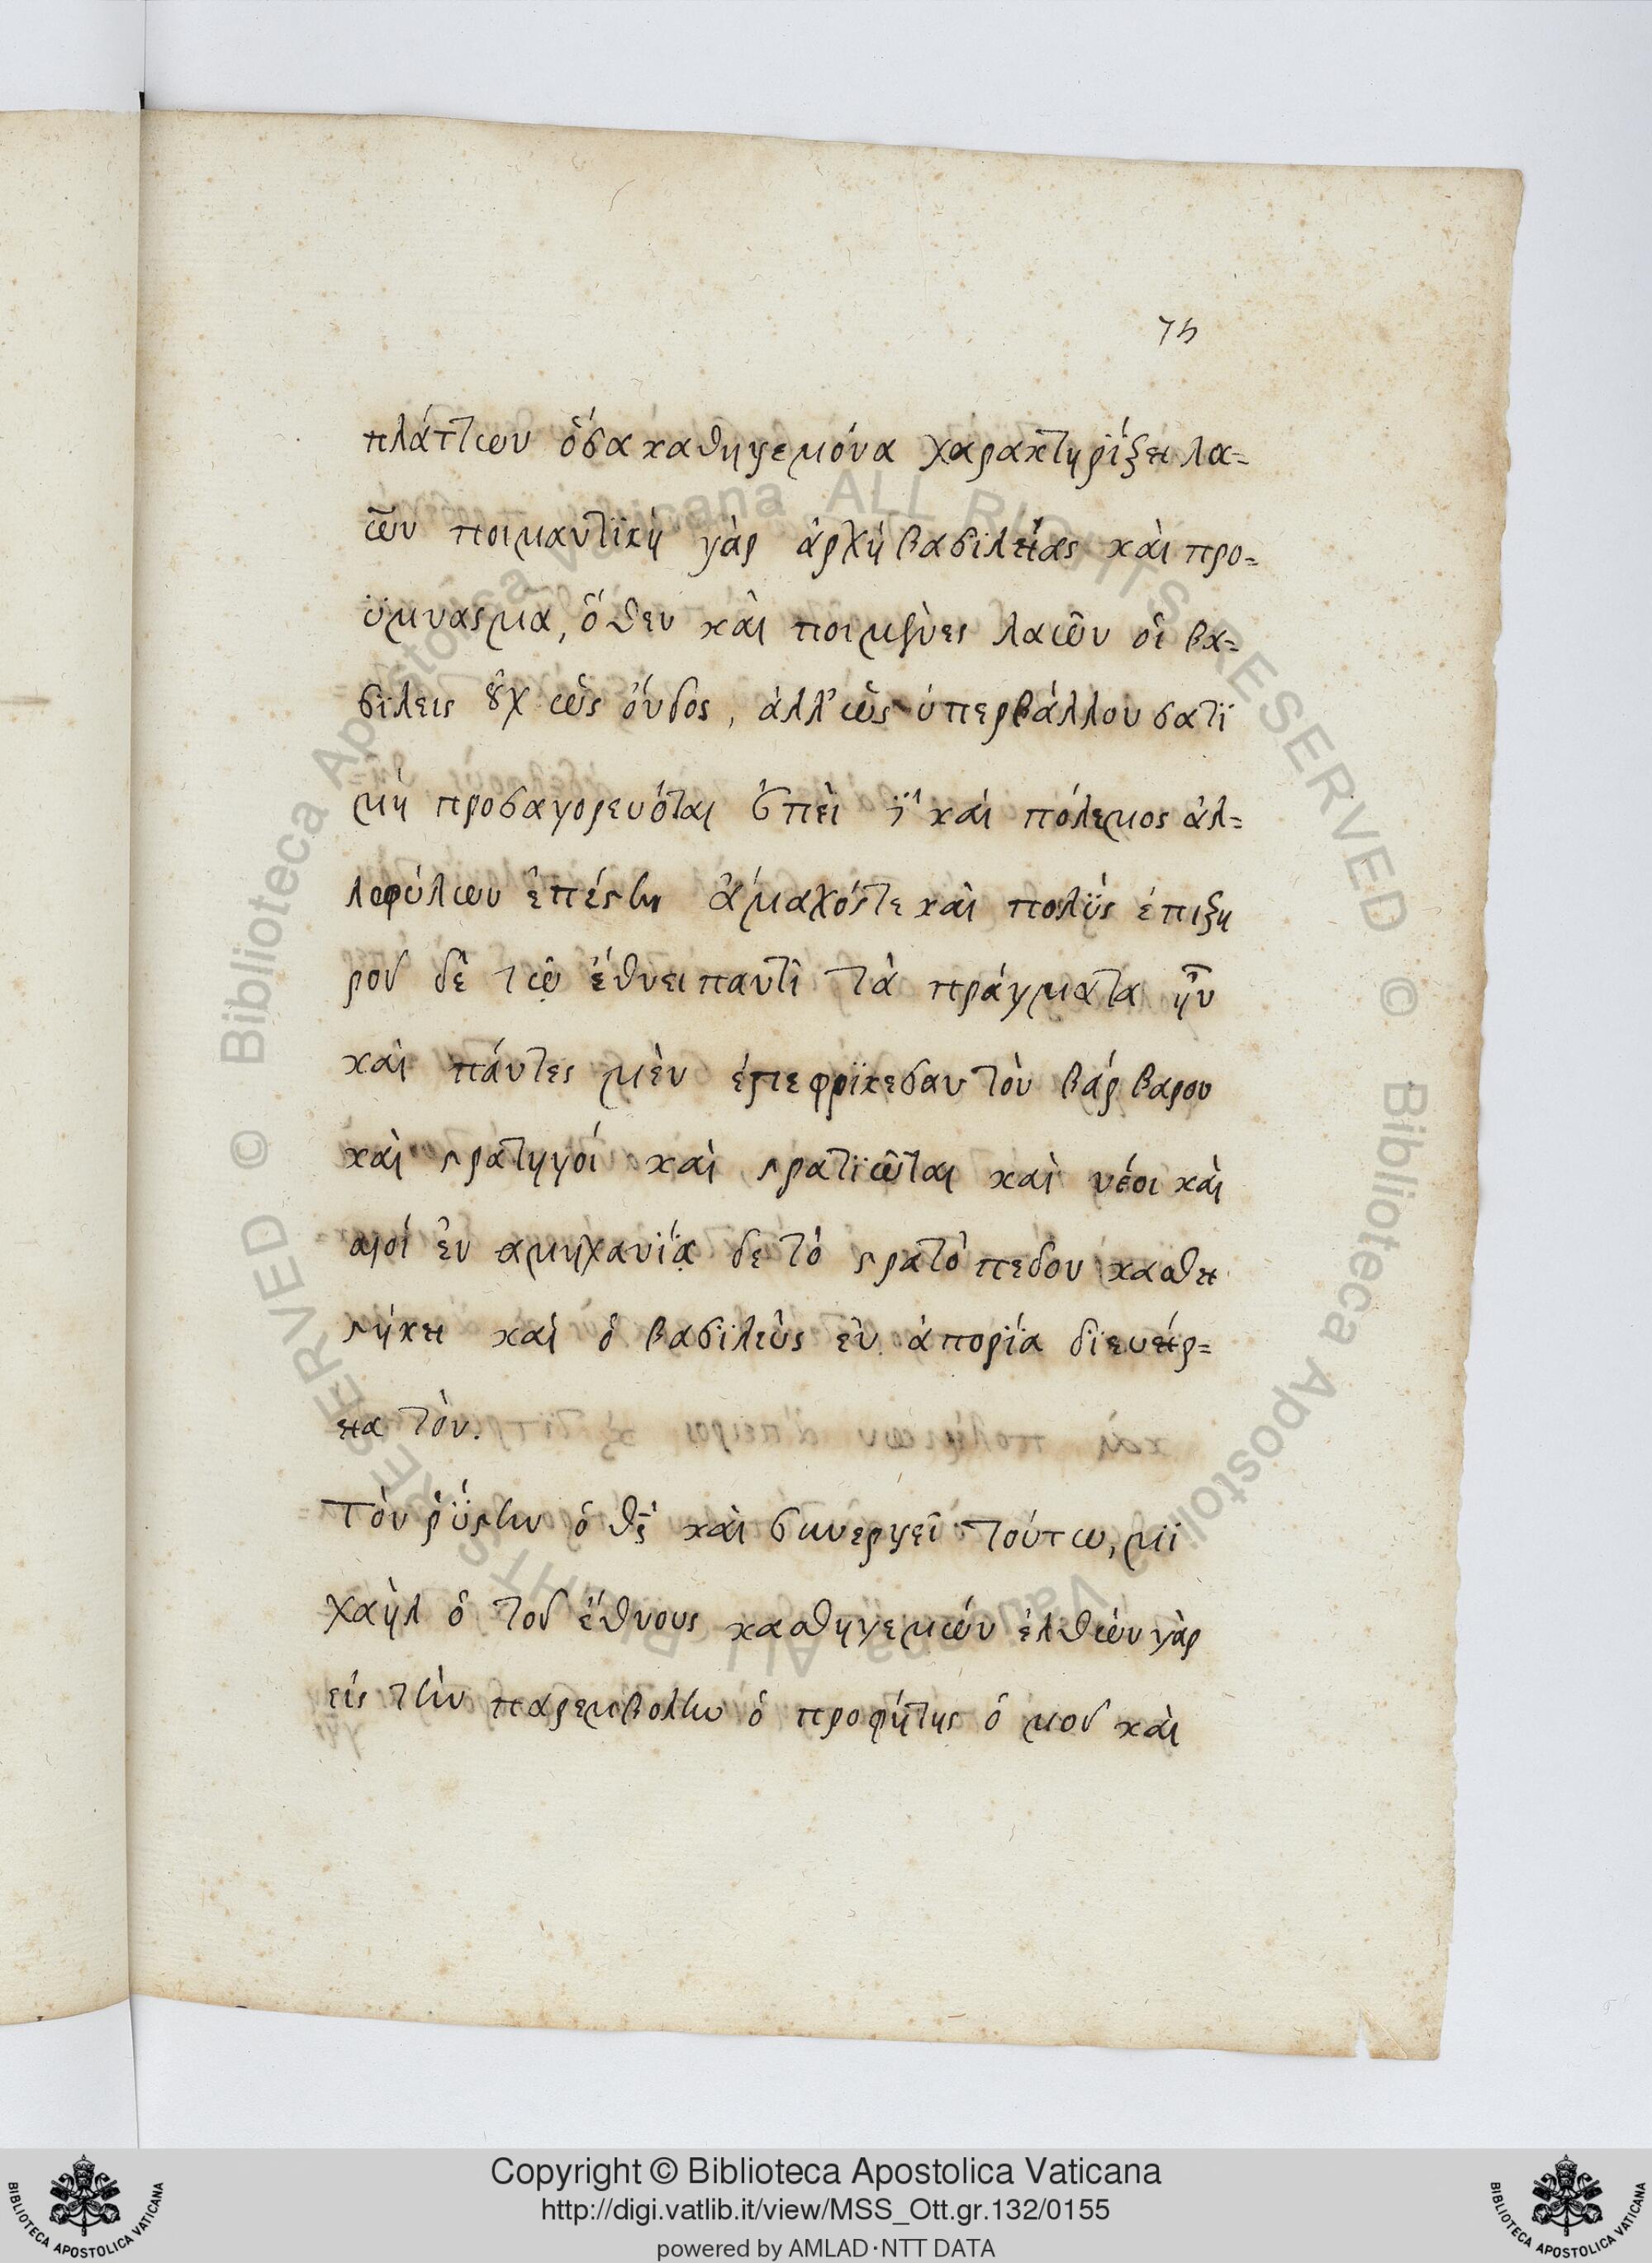 75
πλάττων ὅσα καθηγεμόνα χαρακτηρίζει λα=
ῶν ποιμαντϊκὴ γὰρ ἀρχὴ βασϊλείας καὶ προ=
ϋμνασμα, ὅθεν καὶ ποιμένες λαῶν οἱ βα=
σϊλεις οὐχ ὡς ὄνδος, ἀλλ' ὡς ὑπερβάλλουσα τϊ
μὴ προσαγορεύεται ἐπεὶ καὶ πόλεμος ἀλ=
λοφύλων ἐπέστη ἄμαχόστε καὶ πολὺς ἐπιξη
ρον δὲ τῷ ἔθνει παντὶ τὰ πράγματα ἦν
καὶ πάντες μὲν ἐπεφρίκεσαν τὸν βάρβαρον
καὶ στρατηγοί καὶ στρατϊῶται καὶ νέοι καὶ
ἐν αμηχανίᾳ δε τὸ στρατόπεδον καθει
στήκει καὶ ὁ βασϊλεὺς ἐν ἀπορίᾳ
τὸν.
Τὸν ῥύστην ὁ θς καὶ συνεργεῖ τούτω, μϊ
χαὴλ ὁ τοῦ ἔθνους καθηγεμών ἐλθὼν γὰρ
εἰς τὴν παρεμβολὴν ὁ προφήτης ὁ μοῦ καὶ
Copyright © Biblioteca Apostolica Vaticana
http://digi.vatlib.it/view/MSS_Ott.gr.132/0155
powered by AMLAD·NTT DATA
BIBLIOTECA APOSTOLICA VATICANA
BIBLIOTECA APOSTOLICA VATICANA
© Biblioteca Apostolica Vaticana ALL RIGHTS RESERVED
© Biblioteca Apostolica Vaticana ALL RIGHTS RESERVED